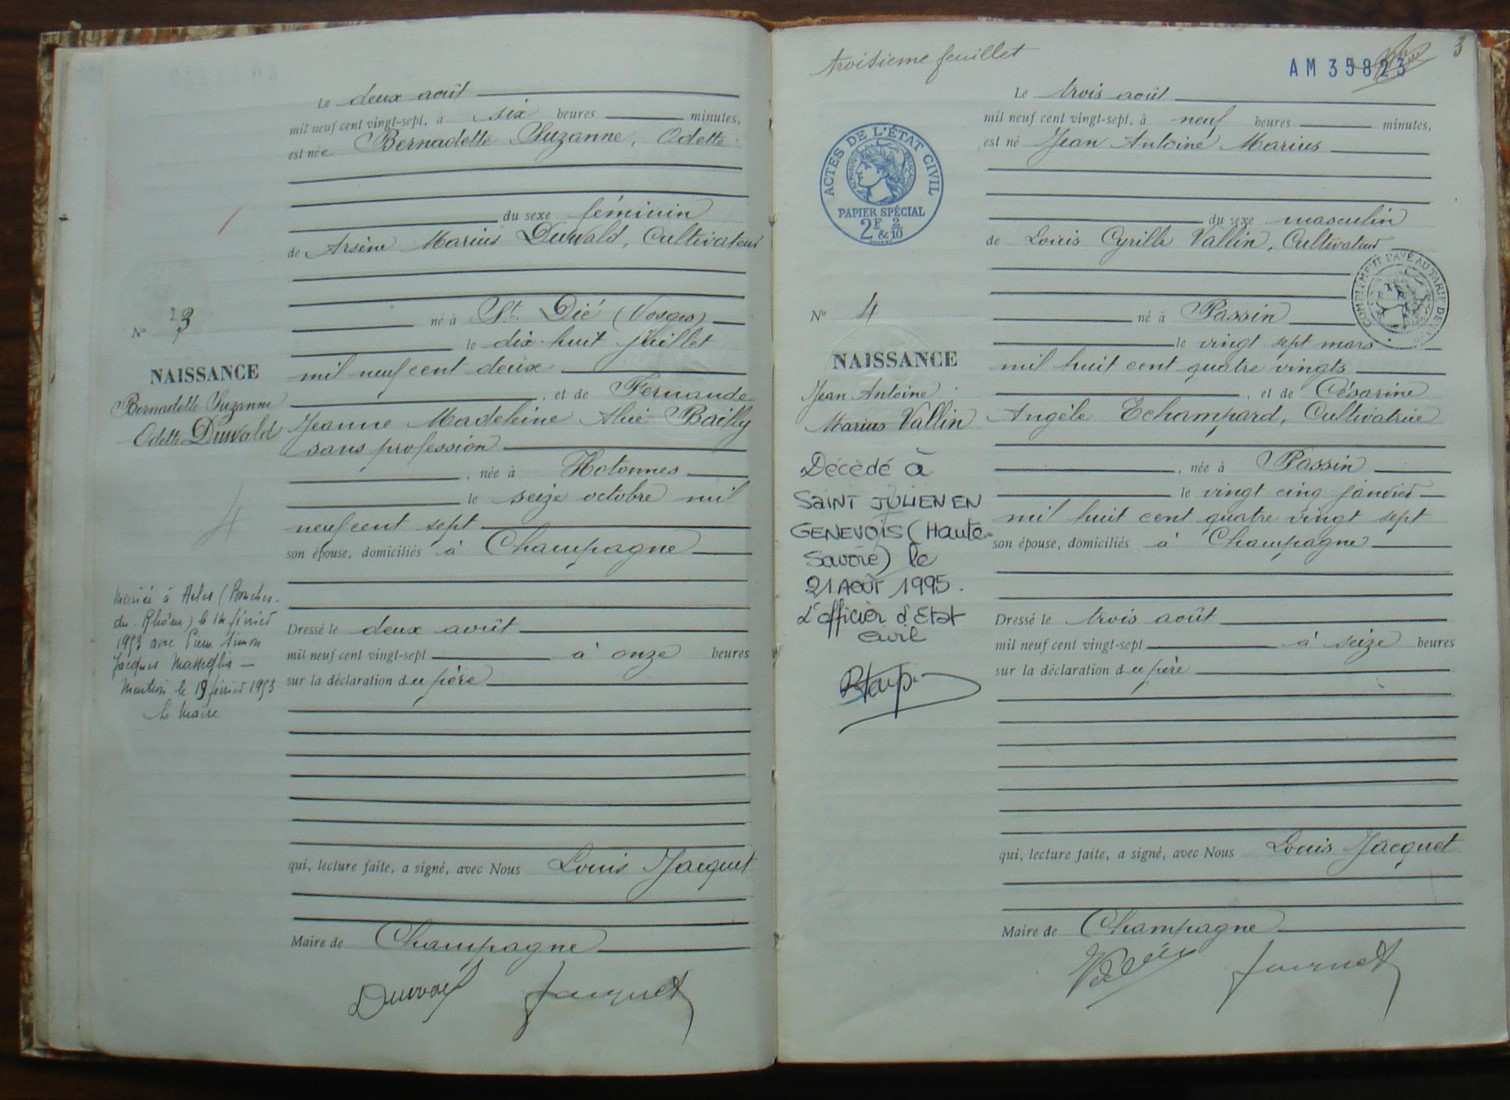 Le deux août
mil neuf cent vingt-sept, à six heures minutes,
est née Bernadette Suzanne, Odette
du sexe féminin
de Arsène Marius Duwald, Cultivateur
né à St. Dié (Vosges)
le dix-huit Juillet
mil neuf cent deux
, et de Fernande
Jeanne Madeleine Alice Bailly
sans profession
, née à Hotonnes
le seize octobre mil
neuf cent sept
son épouse, domiciliés à Champagne
Dressé le deux août
mil neuf cent vingt-sept à onze heures
sur la déclaration du père
qui, lecture faite, a signé, avec Nous Louis Jacquet
Maire de Champagne
Duwald Jacquet
N° 3
NAISSANCE
Bernadette Suzanne
Odette Duwald
4
Mariée à Arles (Bouches-
du-Rhône) le février
1953 avec
Jacques
Mention le 19 février 1953
Le Maire
troisième feuillet
AM 35823
3
Le trois août
mil neuf cent vingt-sept, à neuf heures minutes,
est né Jean Antoine Marius
du sexe masculin
de Louis Cyrille Vallin, Cultivateur
né à Passin
le vingt sept mars
mil huit cent quatre vingts
, et de Césarine
Angèle Echampard, Cultivatrice
, née à Passin
le vingt cinq janvier
mil huit cent quatre vingt sept
son épouse, domiciliés à Champagne
Dressé le trois août
mil neuf cent vingt-sept à seize heures
sur la déclaration du père
qui, lecture faite, a signé, avec Nous Louis Jacquet
Maire de Champagne
Jacquet
ACTES DE L'ÉTAT CIVIL
PAPIER SPÉCIAL
2F 2/10
COMPLÉMENT PAYÉ AU TARIF DE
N° 4
NAISSANCE
Jean Antoine
Marius Vallin
Décédé à
SAINT JULIEN EN
GENEVOIS (Haute-
Savoie) le
21 AOÛT 1995.
L'officier d'Etat
civil